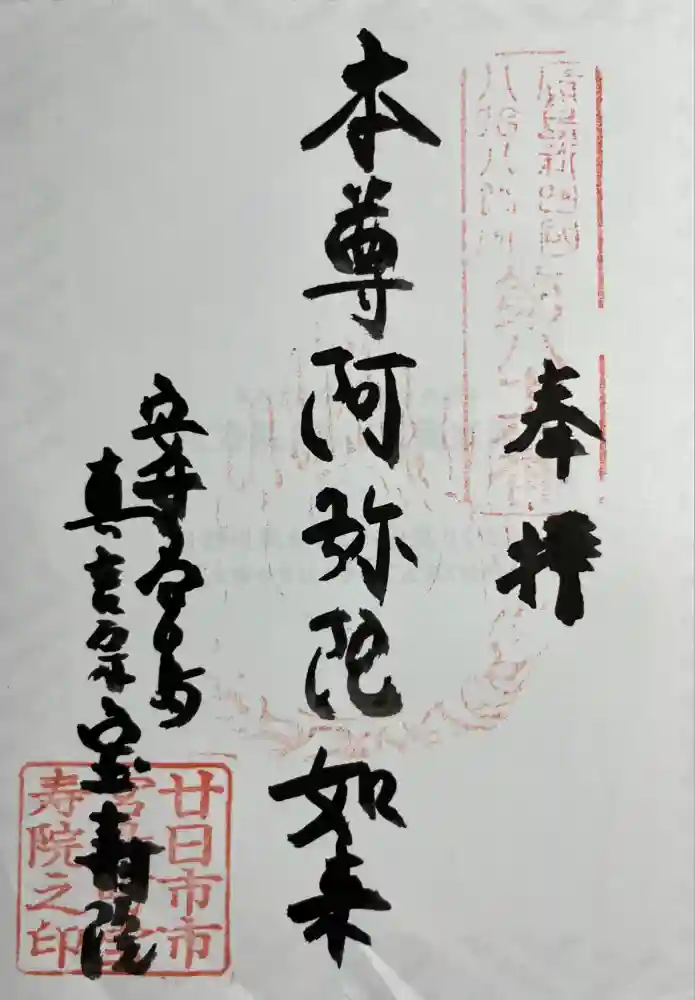 奉拝
本尊阿弥陀如来
安芸宮島
真言宗 宝寿院
廿日市市
宮島町宝
寿院之印